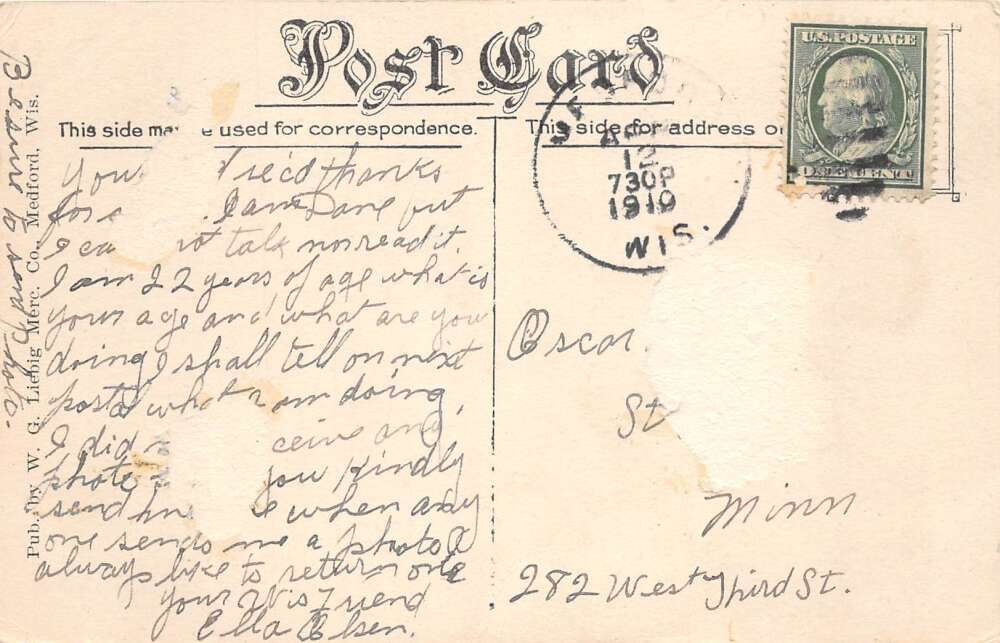 Post Card
This side may be used for correspondence.
This side for address on
U.S. POSTAGE
APR
12
730P
1910
WIS.
You rec'd thanks
for I am Dane but
I ca not talk nor read it.
I am 22 years of age what is
your age and what are you
doing I shall tell on next
postal what I am doing,
I did ceive any
photo you kindly
send me when any
one sends me a photo I
always like to return one
your Wis Friend
Ella Olsen.
Be sure to send photo.
Pub. by W. G. Liebig Merc. Co., Medford, Wis.
Oscar
St
Minn
282 West Third St.